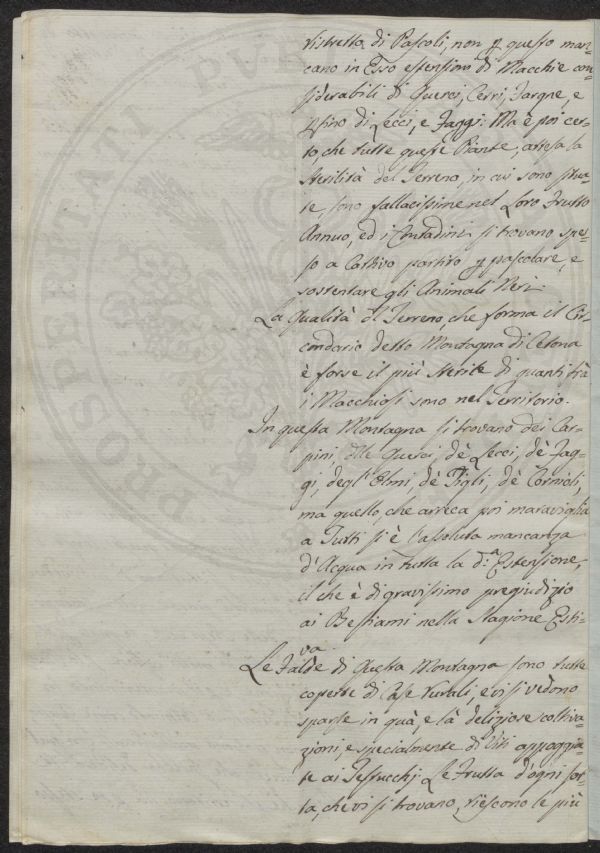 ristretto di Pascoli, non p questo man-
cano in Esso estensioni di Macchie con-
siderabili di Querci, Cerri, Fargne, e
pfino di Lecci, e Faggi. Ma è poi cer-
to, che tutte queste Piante, attesa la
sterilità del Terreno, in cui sono situa-
te, sono fallacissime nel Loro Frutto
Annuo, ed i Contadini si trovano spes-
so a Cattivo partito p pascolare, e
sostentare gli Animali Neri.
La Qualità del Terreno, che forma il Cir-
condario detto Montagna di Cetona
è forse il più sterile di quanti trà
i Macchiosi sono nel Territorio.
In questa Montagna si trovano dei Car-
pini, delle Querci, dè Lecci, dè Fag-
gi, degl'Olmi, dè Tigli, dè Cornioli,
ma quello, che arreca poi maraviglia
a Tutti si è l'assoluta mancanza
d'Acqua in tutta la d.ª Estensione,
il che è di gravissimo pregiudizio
ai Bestiami nella Stagione Esti-
va.
Le Falde di Questa Montagna sono tutte
coperte di Case Rurali, e vi si vedono
sparse in quà, e là deliziose coltiva-
zioni, e specialmente di Viti appoggia-
te ai Testucchj. Le Frutta d'ogni sor-
ta, che vi si trovano, riescono le più
PROSPERITATI